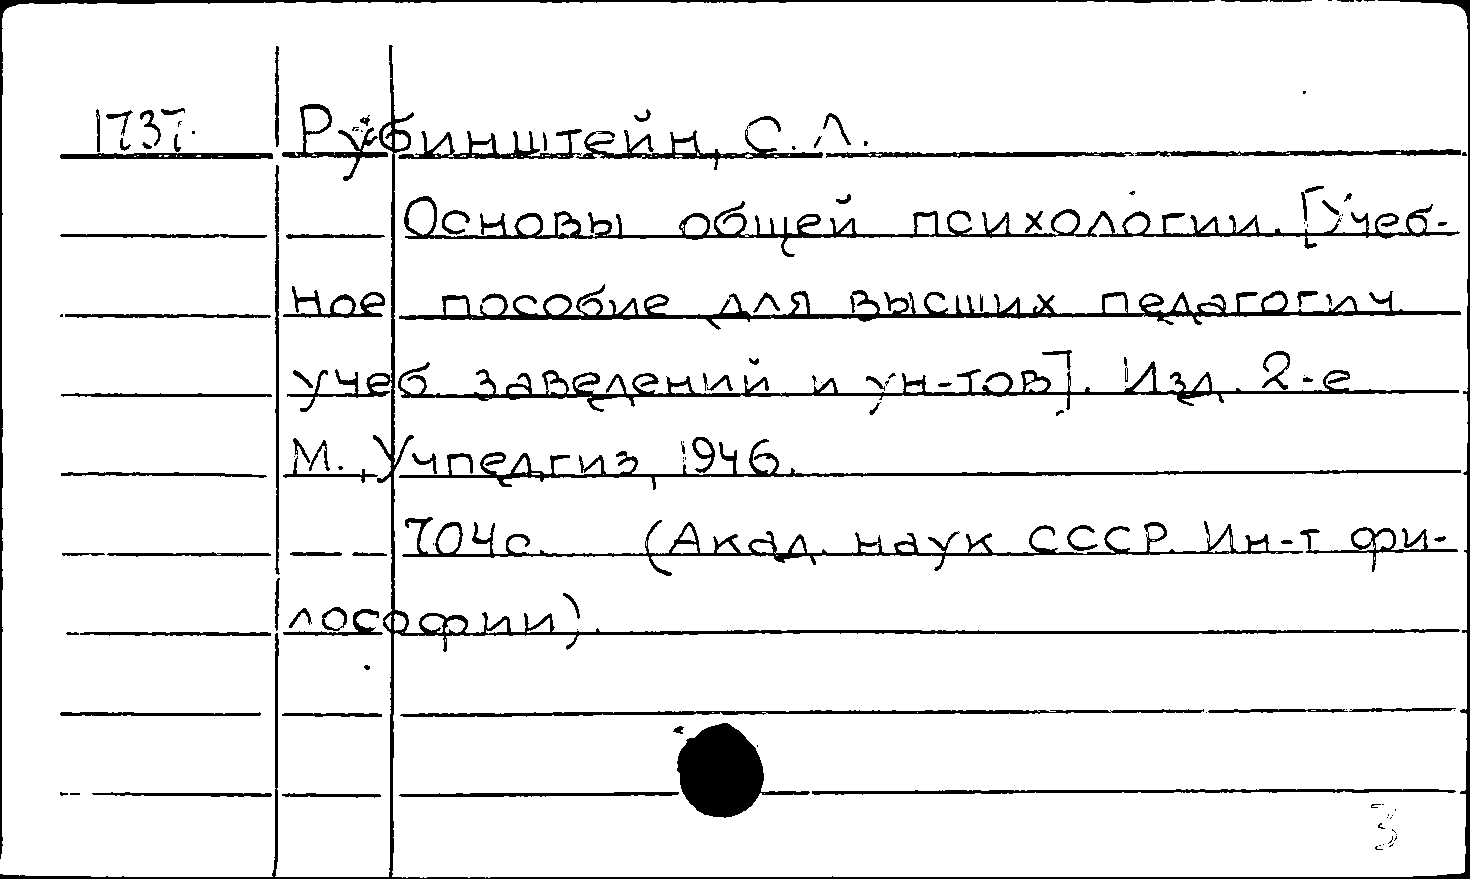 1737. Рубинштейн, С. Л.
Основы общей психологии. [Учеб-
ное пособие для высших педагогич.
учеб заведений и ун-тов]. Изд. 2-е
М., Учпедгиз, 1946.
704с. (Акад. наук СССР. Ин-т фи-
лософии).
3